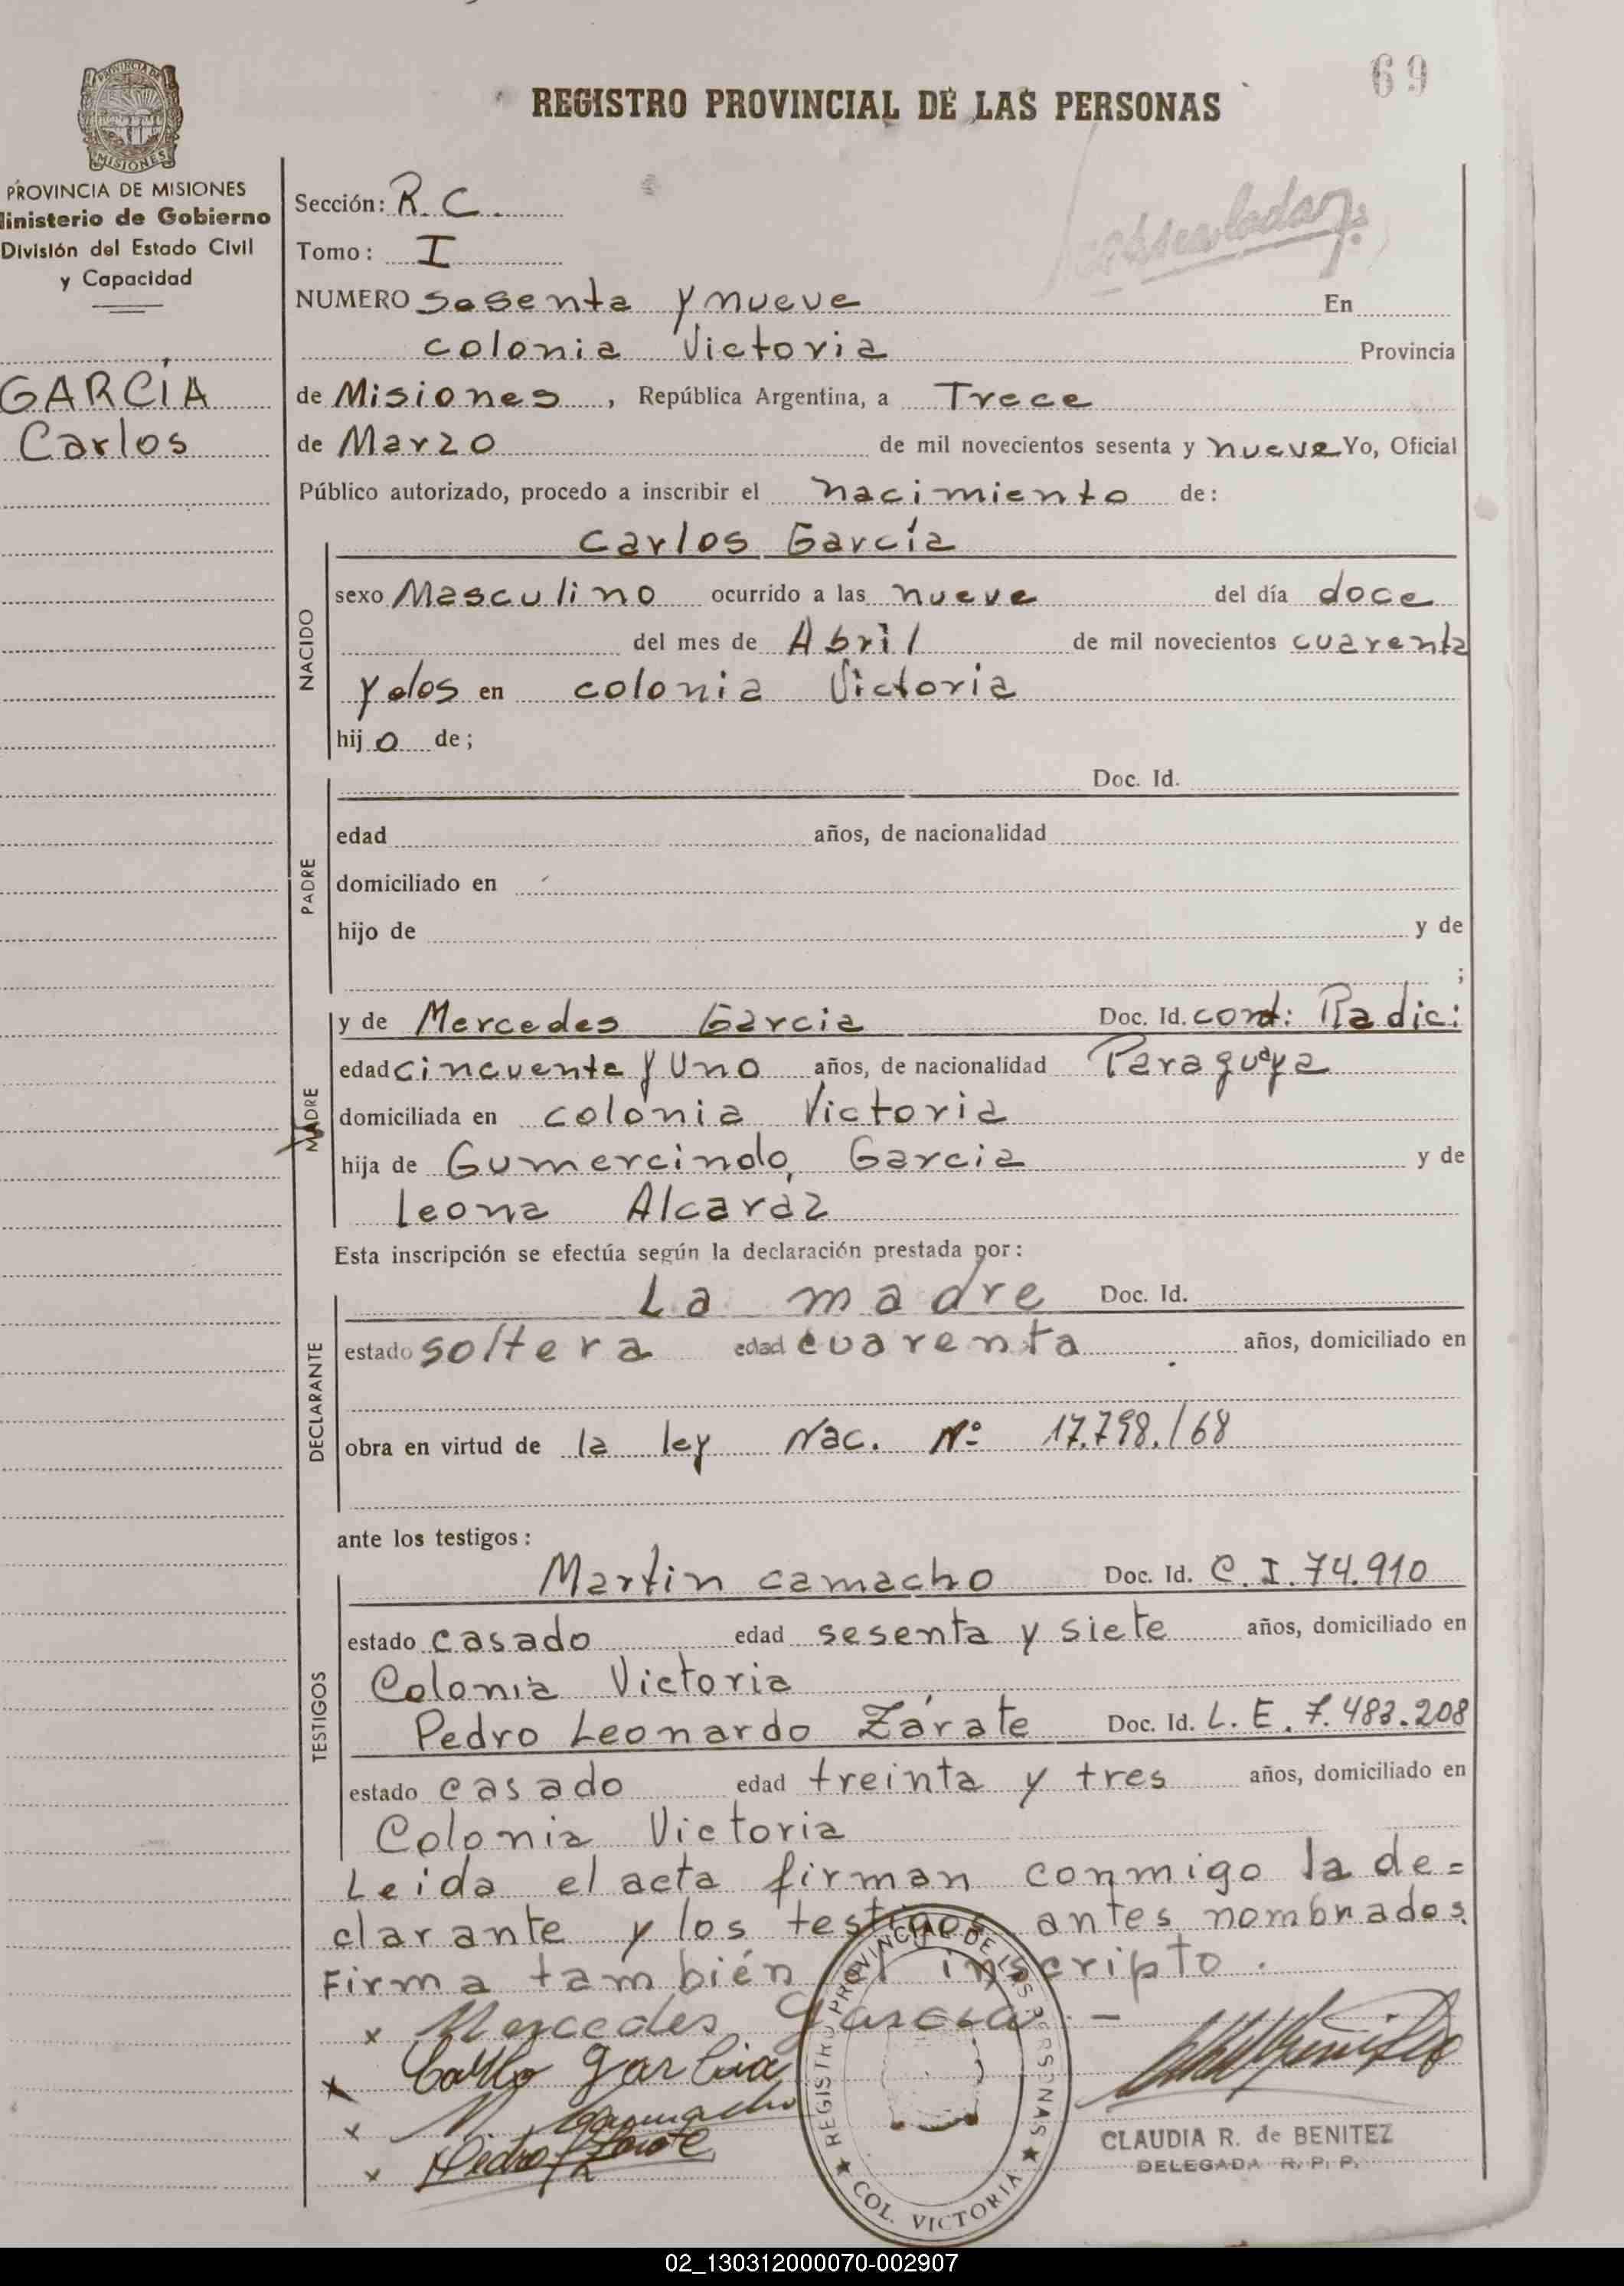 69
REGISTRO PROVINCIAL DE LAS PERSONAS
PROVINCIA DE
MISIONES
PROVINCIA DE MISIONES
Ministerio de Gobierno
División del Estado Civil
y Capacidad
GARCÍA
Carlos
Sección: R. C.
Tomo: I
NUMERO sesenta y nueve En
colonia Victoria Provincia
de Misiones, República Argentina, a Trece
de Marzo de mil novecientos sesenta y nueve Yo, Oficial
Público autorizado, procedo a inscribir el nacimiento de:
NACIDO
Carlos García
sexo Masculino ocurrido a las nueve del día doce
del mes de Abril de mil novecientos cuarenta
y dos en colonia Victoria
hijo de;
PADRE
Doc. Id.
edad años, de nacionalidad
domiciliado en
hijo de y de
;
MADRE
y de Mercedes Garcia Doc. Id. cont: Radic:
edad cincuenta y Uno años, de nacionalidad Paraguaya
domiciliada en colonia Victoria
hija de Gumercindo Garcia y de
Leona Alcaráz
Esta inscripción se efectúa según la declaración prestada por:
DECLARANTE
La madre Doc. Id.
estado soltera edad cuarenta años, domiciliado en
obra en virtud de la ley Nac. Nº 17.798./68
ante los testigos:
TESTIGOS
Martin camacho Doc. Id. C. I. 74.910
estado casado edad sesenta y siete años, domiciliado en
Colonia Victoria
Pedro Leonardo Zárate Doc. Id. L. E. 7.483.208
estado casado edad treinta y tres años, domiciliado en
Colonia Victoria
Leida el acta firman conmigo la de=
clarante y los testigos antes nombrados.
Firma también el inscripto.
x Mercedes Garcia -
x Carlo garcia
x M Camacho
x Pedro L Zarate
REGISTRO PROVINCIAL DE LAS PERSONAS
COL. VICTORIA
CLAUDIA R. de BENITEZ
DELEGADA R. P. P.
02_130312000070-002907